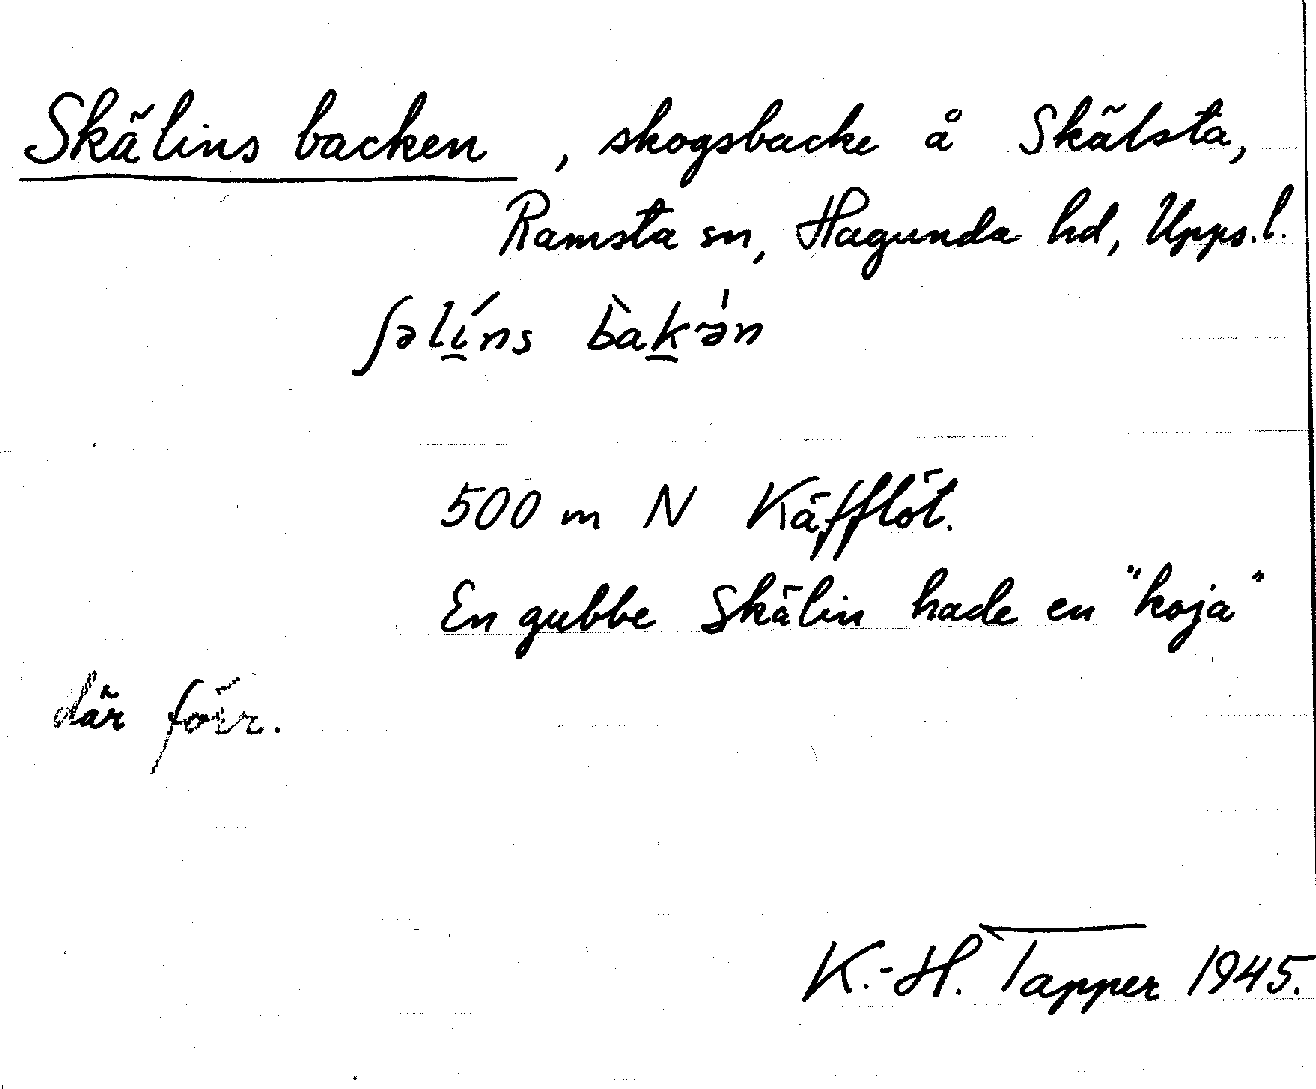 Skälins backen, skogsbacke å Skälsta,
Ramsta sn, Hagunda hd, Upps.l.
ʃəlí̱ns bàḵə̍n
500 m N Käfflöt.
En gubbe Skälin hade en "koja"
där förr.
K.-H. Tapper 1945.